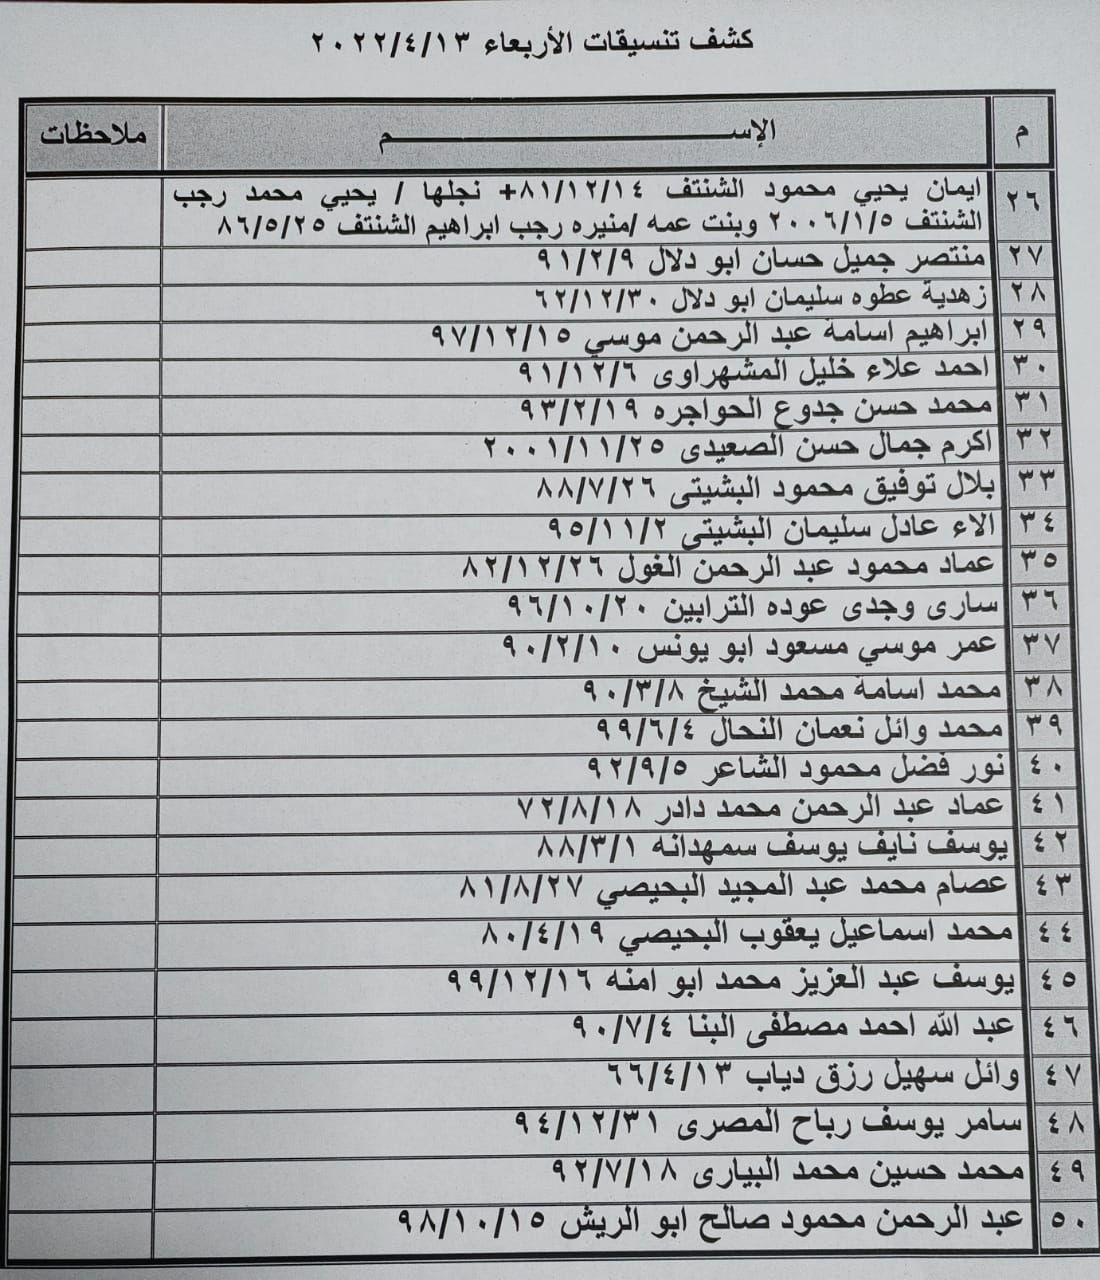 كشف تنسيقات الأربعاء ٢٠٢٢/٤/١٣
م الإســـــــــم ملاحظات
٢٦ ايمان يحيي محمود الشنتف ٨١/١٢/١٤+ نجلها / يحيي محمد رجب
الشنتف ٢٠٠٦/١/٥ وبنت عمه /منيره رجب ابراهيم الشنتف ٨٦/٥/٢٥
٢٧ منتصر جميل حسان ابو دلال ٩١/٢/٩
٢٨ زهدية عطوه سليمان ابو دلال ٦٢/١٢/٣٠
٢٩ ابراهيم اسامة عبد الرحمن موسي ٩٧/١٢/١٥
٣٠ احمد علاء خليل المشهراوى ٩١/١٢/٦
٣١ محمد حسن جدوع الحواجره ٩٣/٢/١٩
٣٢ اكرم جمال حسن الصعيدى ٢٠٠١/١١/٢٥
٣٣ بلال توفيق محمود البشيتى ٨٨/٧/٢٦
٣٤ الاء عادل سليمان البشيتى ٩٥/١١/٢
٣٥ عماد محمود عبد الرحمن الغول ٨٢/١٢/٢٦
٣٦ سارى وجدى عوده الترابين ٩٦/١٠/٢٠
٣٧ عمر موسي مسعود ابو يونس ٩٠/٢/١٠
٣٨ محمد اسامة محمد الشيخ ٩٠/٣/٨
٣٩ محمد وائل نعمان النحال ٩٩/٦/٤
٤٠ نور فضل محمود الشاعر ٩٢/٩/٥
٤١ عماد عبد الرحمن محمد دادر ٧٢/٨/١٨
٤٢ يوسف نايف يوسف سمهدانه ٨٨/٣/١
٤٣ عصام محمد عبد المجيد البحيصي ٨١/٨/٢٧
٤٤ محمد اسماعيل يعقوب البحيصي ٨٠/٤/١٩
٤٥ يوسف عبد العزيز محمد ابو امنه ٩٩/١٢/١٦
٤٦ عبد الله احمد مصطفى البنا ٩٠/٧/٤
٤٧ وائل سهيل رزق دياب ٦٦/٤/١٣
٤٨ سامر يوسف رباح المصرى ٩٤/١٢/٣١
٤٩ محمد حسين محمد البيارى ٩٢/٧/١٨
٥٠ عبد الرحمن محمود صالح ابو الريش ٩٨/١٠/١٥